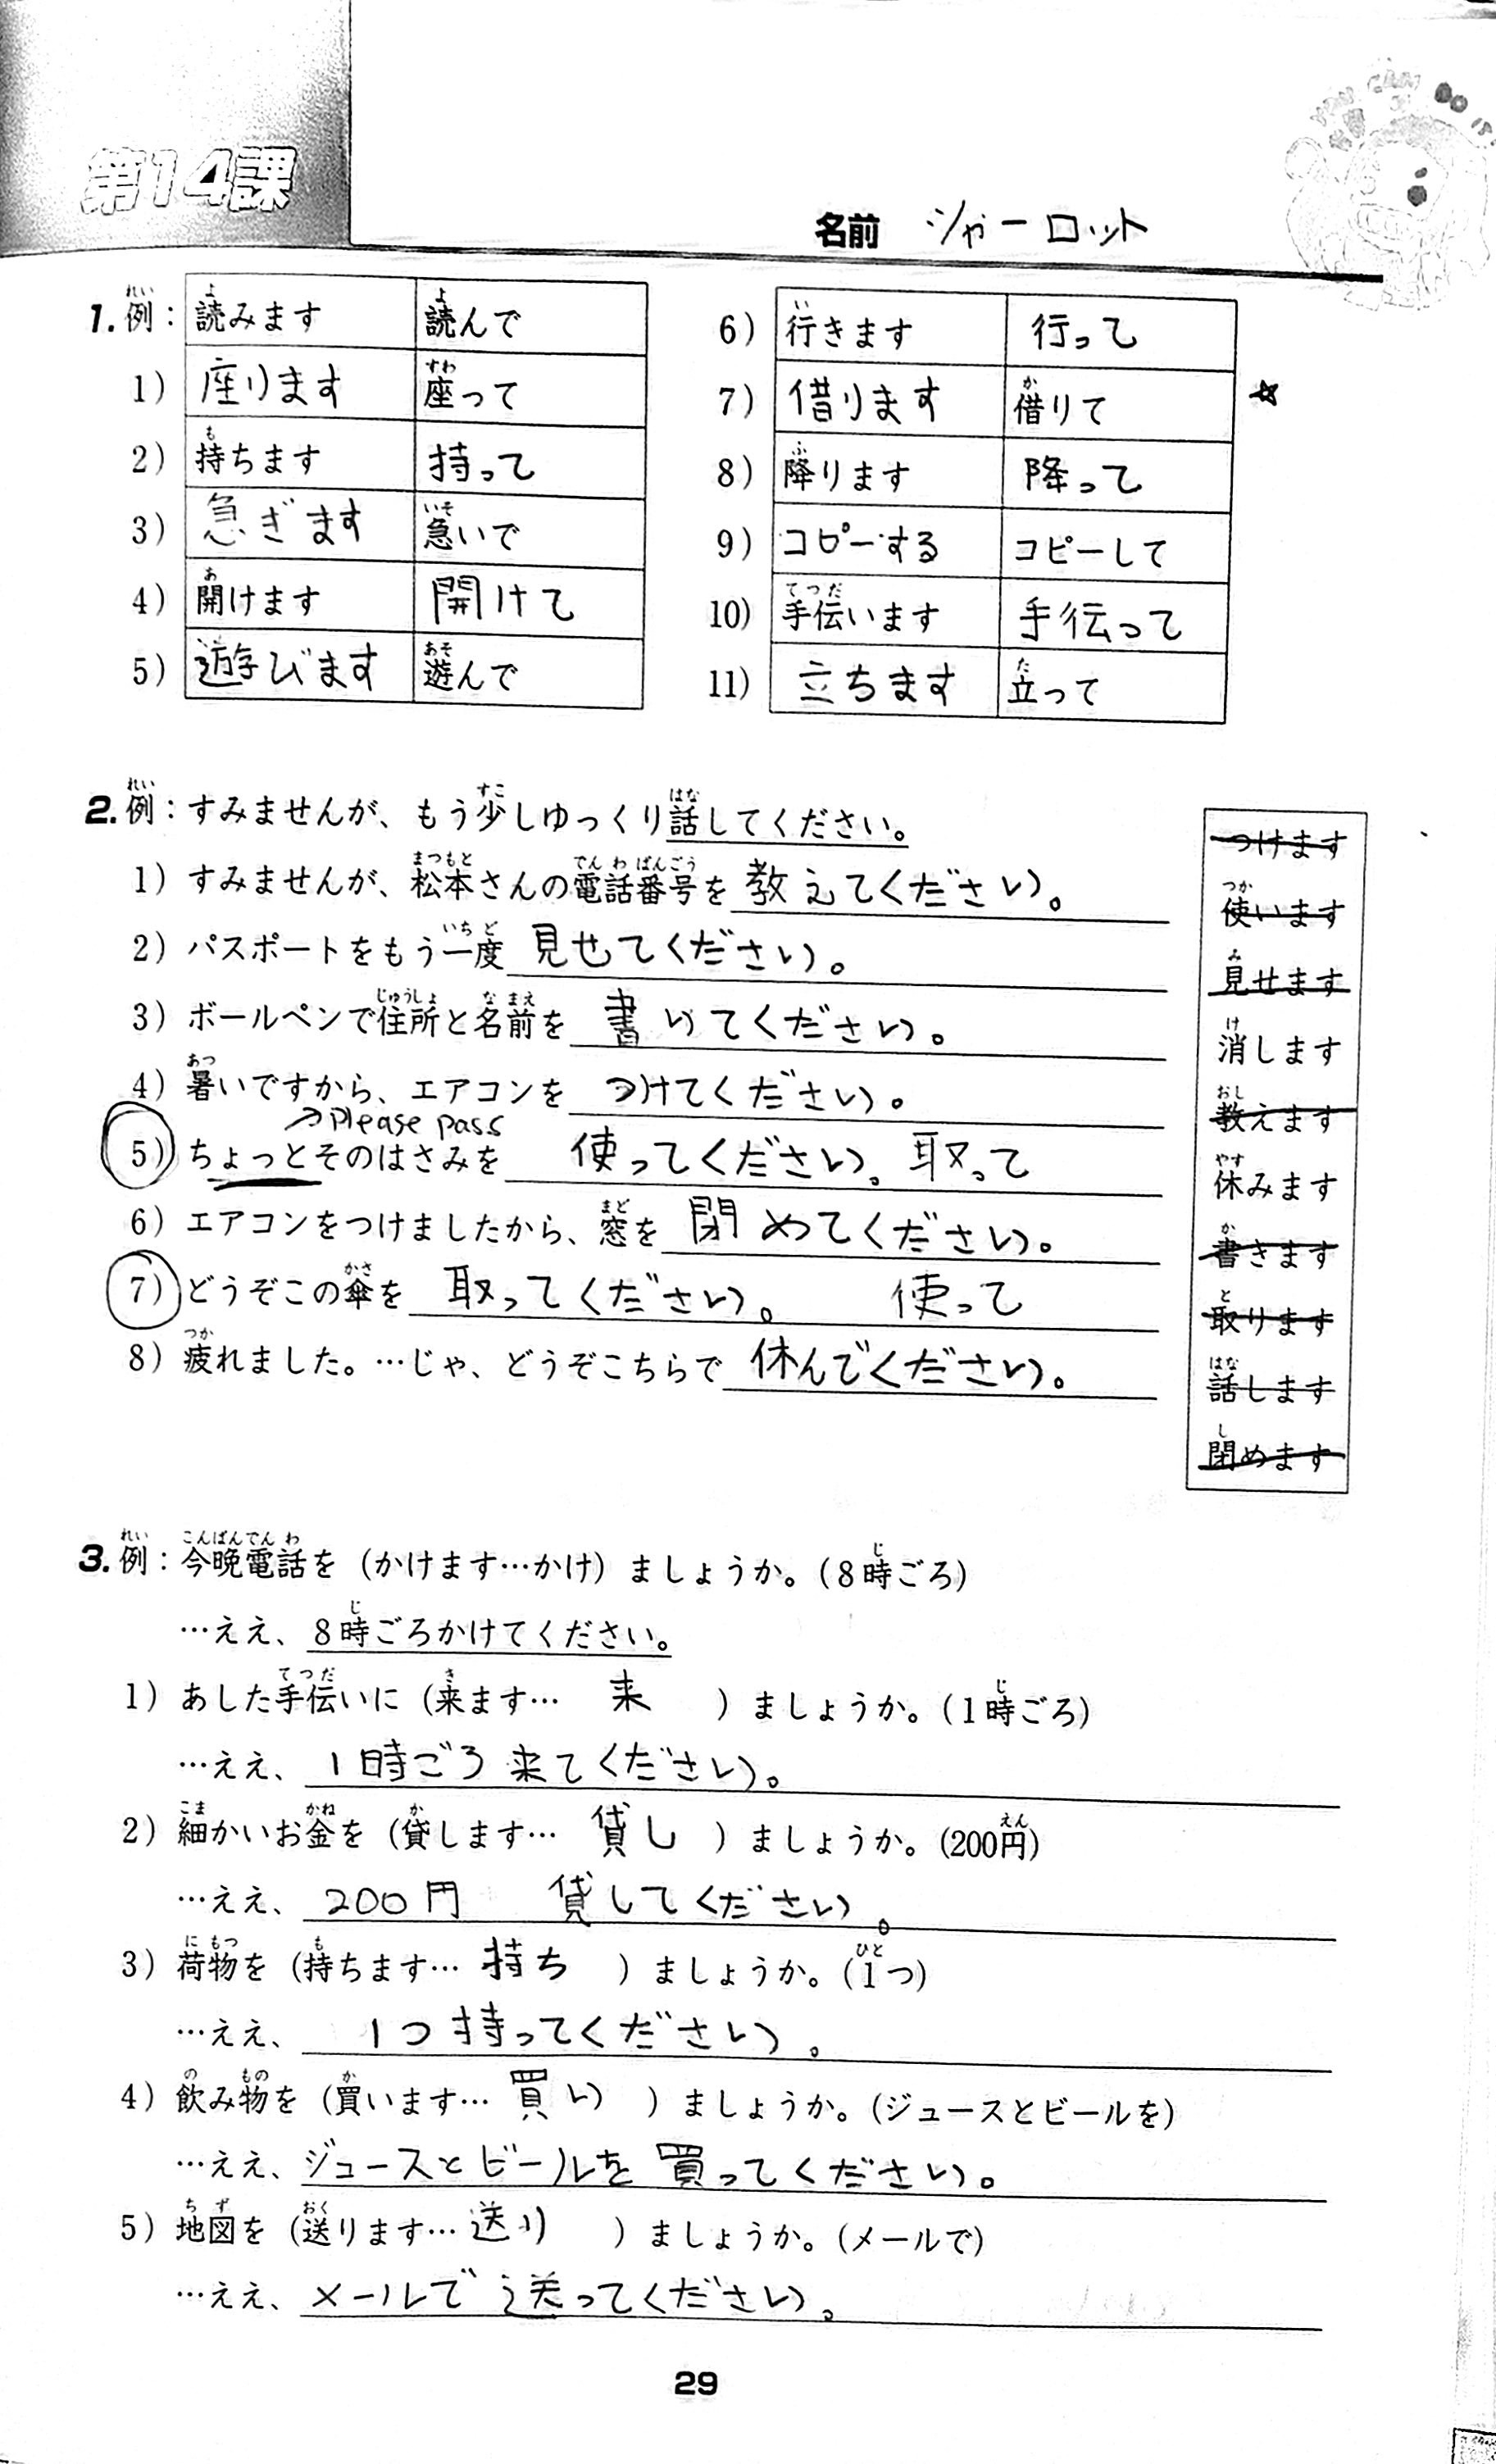 第14課
YOU CAN DO IT
名前 シャーロット
1. 例： 読みます 読んで
1） 座ります 座って
2） 持ちます 持って
3） 急ぎます 急いで
4） 開けます 開けて
5） 遊びます 遊んで
6） 行きます 行って
7） 借ります 借りて ☆
8） 降ります 降って
9） コピーする コピーして
10） 手伝います 手伝って
11） 立ちます 立って
2. 例：すみませんが、もう少しゆっくり話してください。
1）すみませんが、松本さんの電話番号を 教えてください。
2）パスポートをもう一度 見せてください。
3）ボールペンで住所と名前を 書いてください。
4）暑いですから、エアコンを つけてください。
→Please pass
5）ちょっとそのはさみを 使ってください。 取って
6）エアコンをつけましたから、窓を 閉めてください。
7）どうぞこの傘を 取ってください。 使って
8）疲れました。…じゃ、どうぞこちらで 休んでください。
つけます
使います
見せます
消します
教えます
休みます
書きます
取ります
話します
閉めます
3. 例：今晩電話を（かけます…かけ）ましょうか。（8時ごろ）
…ええ、8時ごろかけてください。
1）あした手伝いに（来ます… 来 ）ましょうか。（1時ごろ）
…ええ、1時ごろ来てください。
2）細かいお金を（貸します… 貸し ）ましょうか。（200円）
…ええ、200円 貸してください。
3）荷物を（持ちます… 持ち ）ましょうか。（1つ）
…ええ、1つ持ってください。
4）飲み物を（買います… 買い ）ましょうか。（ジュースとビールを）
…ええ、ジュースとビールを買ってください。
5）地図を（送ります… 送り ）ましょうか。（メールで）
…ええ、メールで送ってください。
29